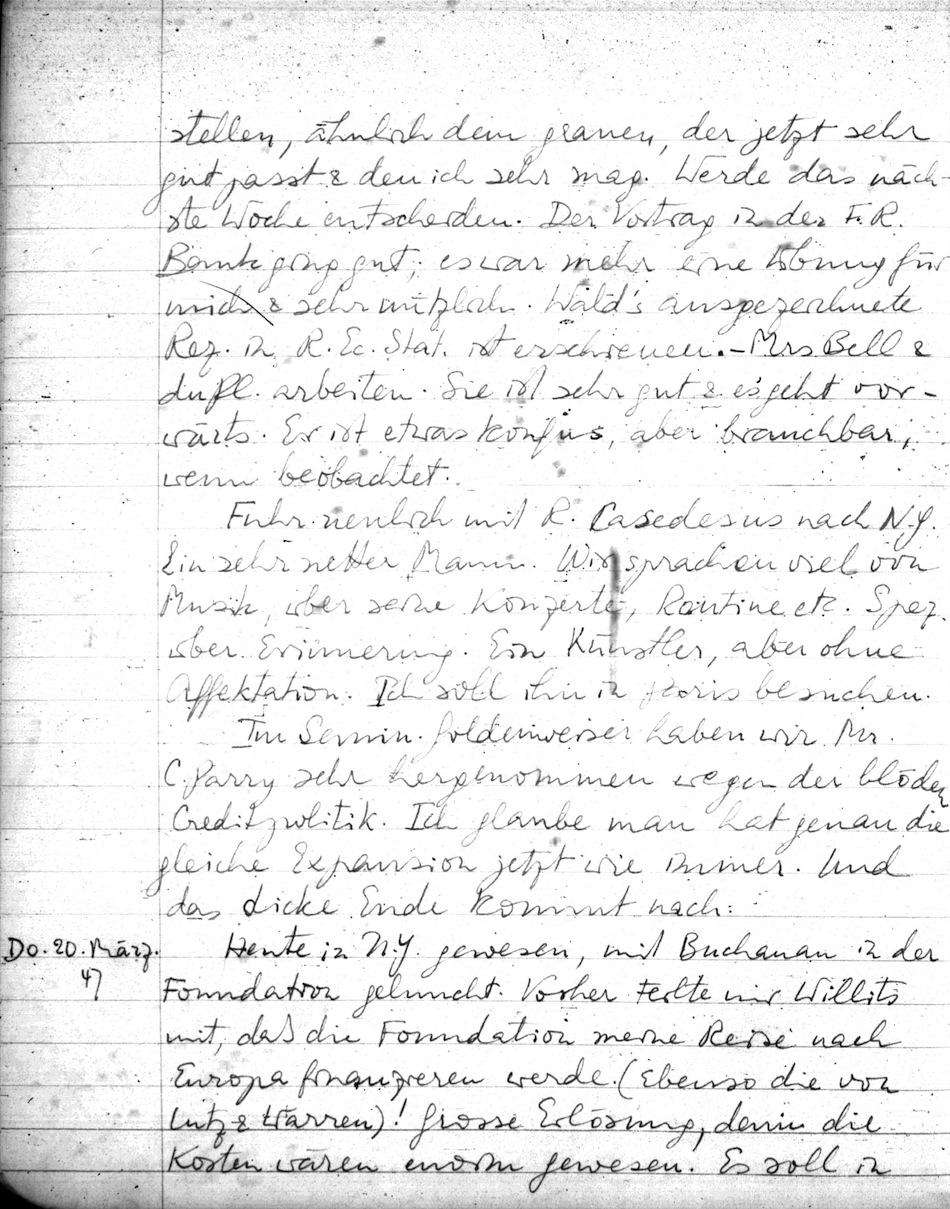 stellen, ähnlich dem grauen, der jetzt sehr
gut passt & den ich sehr mag. Werde das näch-
ste Woche entscheiden. Der Vortrag in der F.R.
Bank ging gut; es war mehr eine Übung für
mich & sehr nützlich. Wald's ausgezeichnete
Rez. in R. Ec. Stat. ist erschienen. – Mrs Bell &
arbeiten. Sie ist sehr gut & es geht vor-
wärts. Er ist etwas konfus, aber brauchbar,
wenn beobachtet.
Fuhr neulich mit R. Casedesus nach N.Y.
Ein sehr netter Mann. Wir sprachen viel von
Musik, über seine Konzerte, Routine etc. Spez.
über Erinnerung. Ein Künstler, aber ohne
Affektation. Ich soll ihn in Paris besuchen.
Im Semin. Goldenweiser haben wir Mr.
C. Parry sehr hergenommen wegen der blöden
Creditpolitik. Ich glaube man hat genau die
gleiche Expansion jetzt wie immer. Und
das dicke Ende kommt nach.
Do. 20. März. Heute in N.Y. gewesen, mit Buchanan in der
47 Foundation geluncht. Vorher teilte mir Willits
mit, daß die Foundation meine Reise nach
Europa finanzieren werde. (Ebenso die von
Lutz & Warren)! Grosse Erlösung, denn die
Kosten wären enorm gewesen. Es soll in